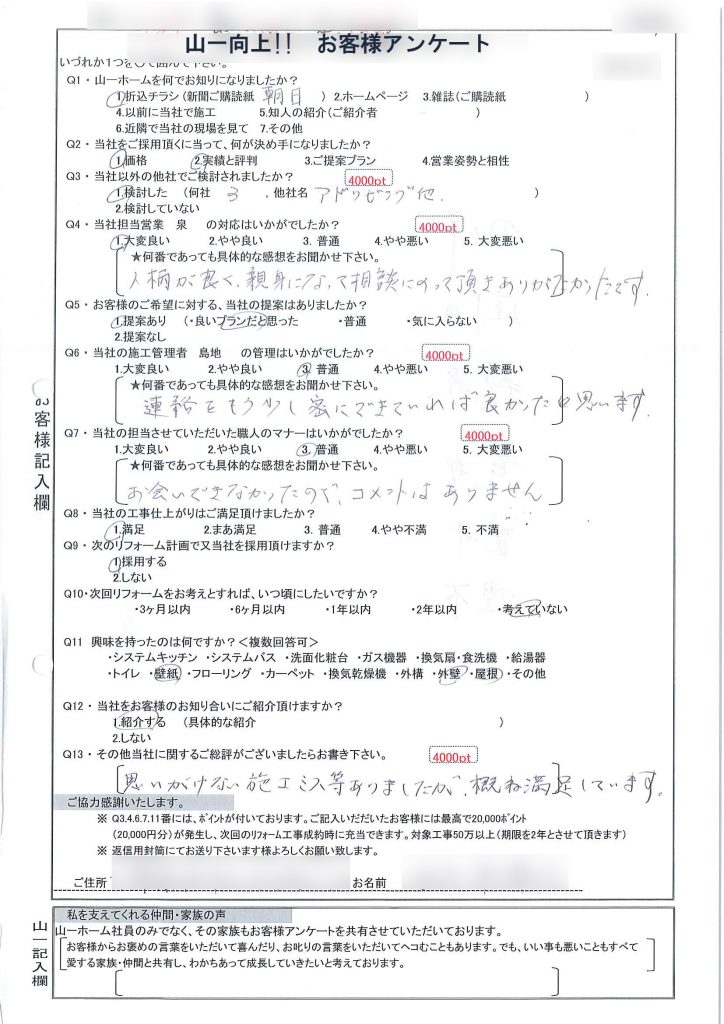 山一向上!! お客様アンケート
いづれか1つを○で囲んで下さい。
Q1・山一ホームを何でお知りになりましたか?
1.折込チラシ(新聞ご購読紙 朝日 ) 2.ホームページ 3.雑誌(ご購読紙 )
4.以前に当社で施工 5.知人の紹介(ご紹介者 )
6.近隣で当社の現場を見て 7.その他
Q2・当社をご採用頂くに当って、何が決め手になりましたか?
1.価格 2.実績と評判 3.ご提案プラン 4.営業姿勢と相性
Q3・当社以外の他社でご検討されましたか? 4000pt
1.検討した (何社 3 .他社名 アドリビング他. )
2.検討していない
Q4・当社担当営業 泉 の対応はいかがでしたか? 4000pt
1.大変良い 2.やや良い 3. 普通 4.やや悪い 5. 大変悪い
★何番であっても具体的な感想をお聞かせ下さい。
人柄が良く、親身になって相談にのって頂きありがたかったです.
Q5・お客様のご希望に対する、当社の提案はありましたか?
1.提案あり (・良いプランだと思った ・普通 ・気に入らない )
2.提案なし
Q6・当社の施工管理者 島地 の管理はいかがでしたか? 4000pt
1.大変良い 2.やや良い 3. 普通 4.やや悪い 5. 大変悪い
★何番であっても具体的な感想をお聞かせ下さい。
連絡をもう少し密にできていれば良かったと思います.
Q7・当社の担当させていただいた職人のマナーはいかがでしたか? 4000pt
1.大変良い 2.やや良い 3. 普通 4.やや悪い 5. 大変悪い
★何番であっても具体的な感想をお聞かせ下さい。
お会いできなかったので、コメントはありません
Q8・当社の工事仕上がりはご満足頂けましたか?
1.満足 2.まあ満足 3. 普通 4.やや不満 5. 不満
Q9・次のリフォーム計画で又当社を採用頂けますか?
1.採用する
2.しない
Q10・次回リフォームをお考えとすれば、いつ頃にしたいですか?
・3ヶ月以内 ・6ヶ月以内 ・1年以内 ・2年以内 ・考えていない
Q11 興味を持ったのは何ですか?<複数回答可>
・システムキッチン ・システムバス ・洗面化粧台 ・ガス機器 ・換気扇・食洗機 ・給湯器
・トイレ ・壁紙 ・フローリング ・カーペット ・換気乾燥機 ・外構 ・外壁 ・屋根 ・その他
Q12・当社をお客様のお知り合いにご紹介頂けますか?
1.紹介する (具体的な紹介 )
2.しない
Q13・その他当社に関するご総評がございましたらお書き下さい。 4000pt
思いがけない施工ミス等ありましたが、概ね満足しています.
ご協力感謝いたします。
※ Q3.4.6.7.11番には、ポイントが付いております。ご記入いただいたお客様には最高で20,000ポイント
(20,000円分)が発生し、次回のリフォーム工事成約時に充当できます。対象工事50万以上(期限を2年とさせて頂きます)
※ 返信用封筒にてお送り下さいます様よろしくお願い致します。
ご住所 お名前
お客様記入欄
私を支えてくれる仲間・家族の声
山一ホーム社員のみでなく、その家族もお客様アンケートを共有させていただいております。
お客様からお褒めの言葉をいただいて喜んだり、お叱りの言葉をいただいてヘコむこともあります。でも、いい事も悪いこともすべて
愛する家族・仲間と共有し、わかちあって成長していきたいと考えております。
山一記入欄